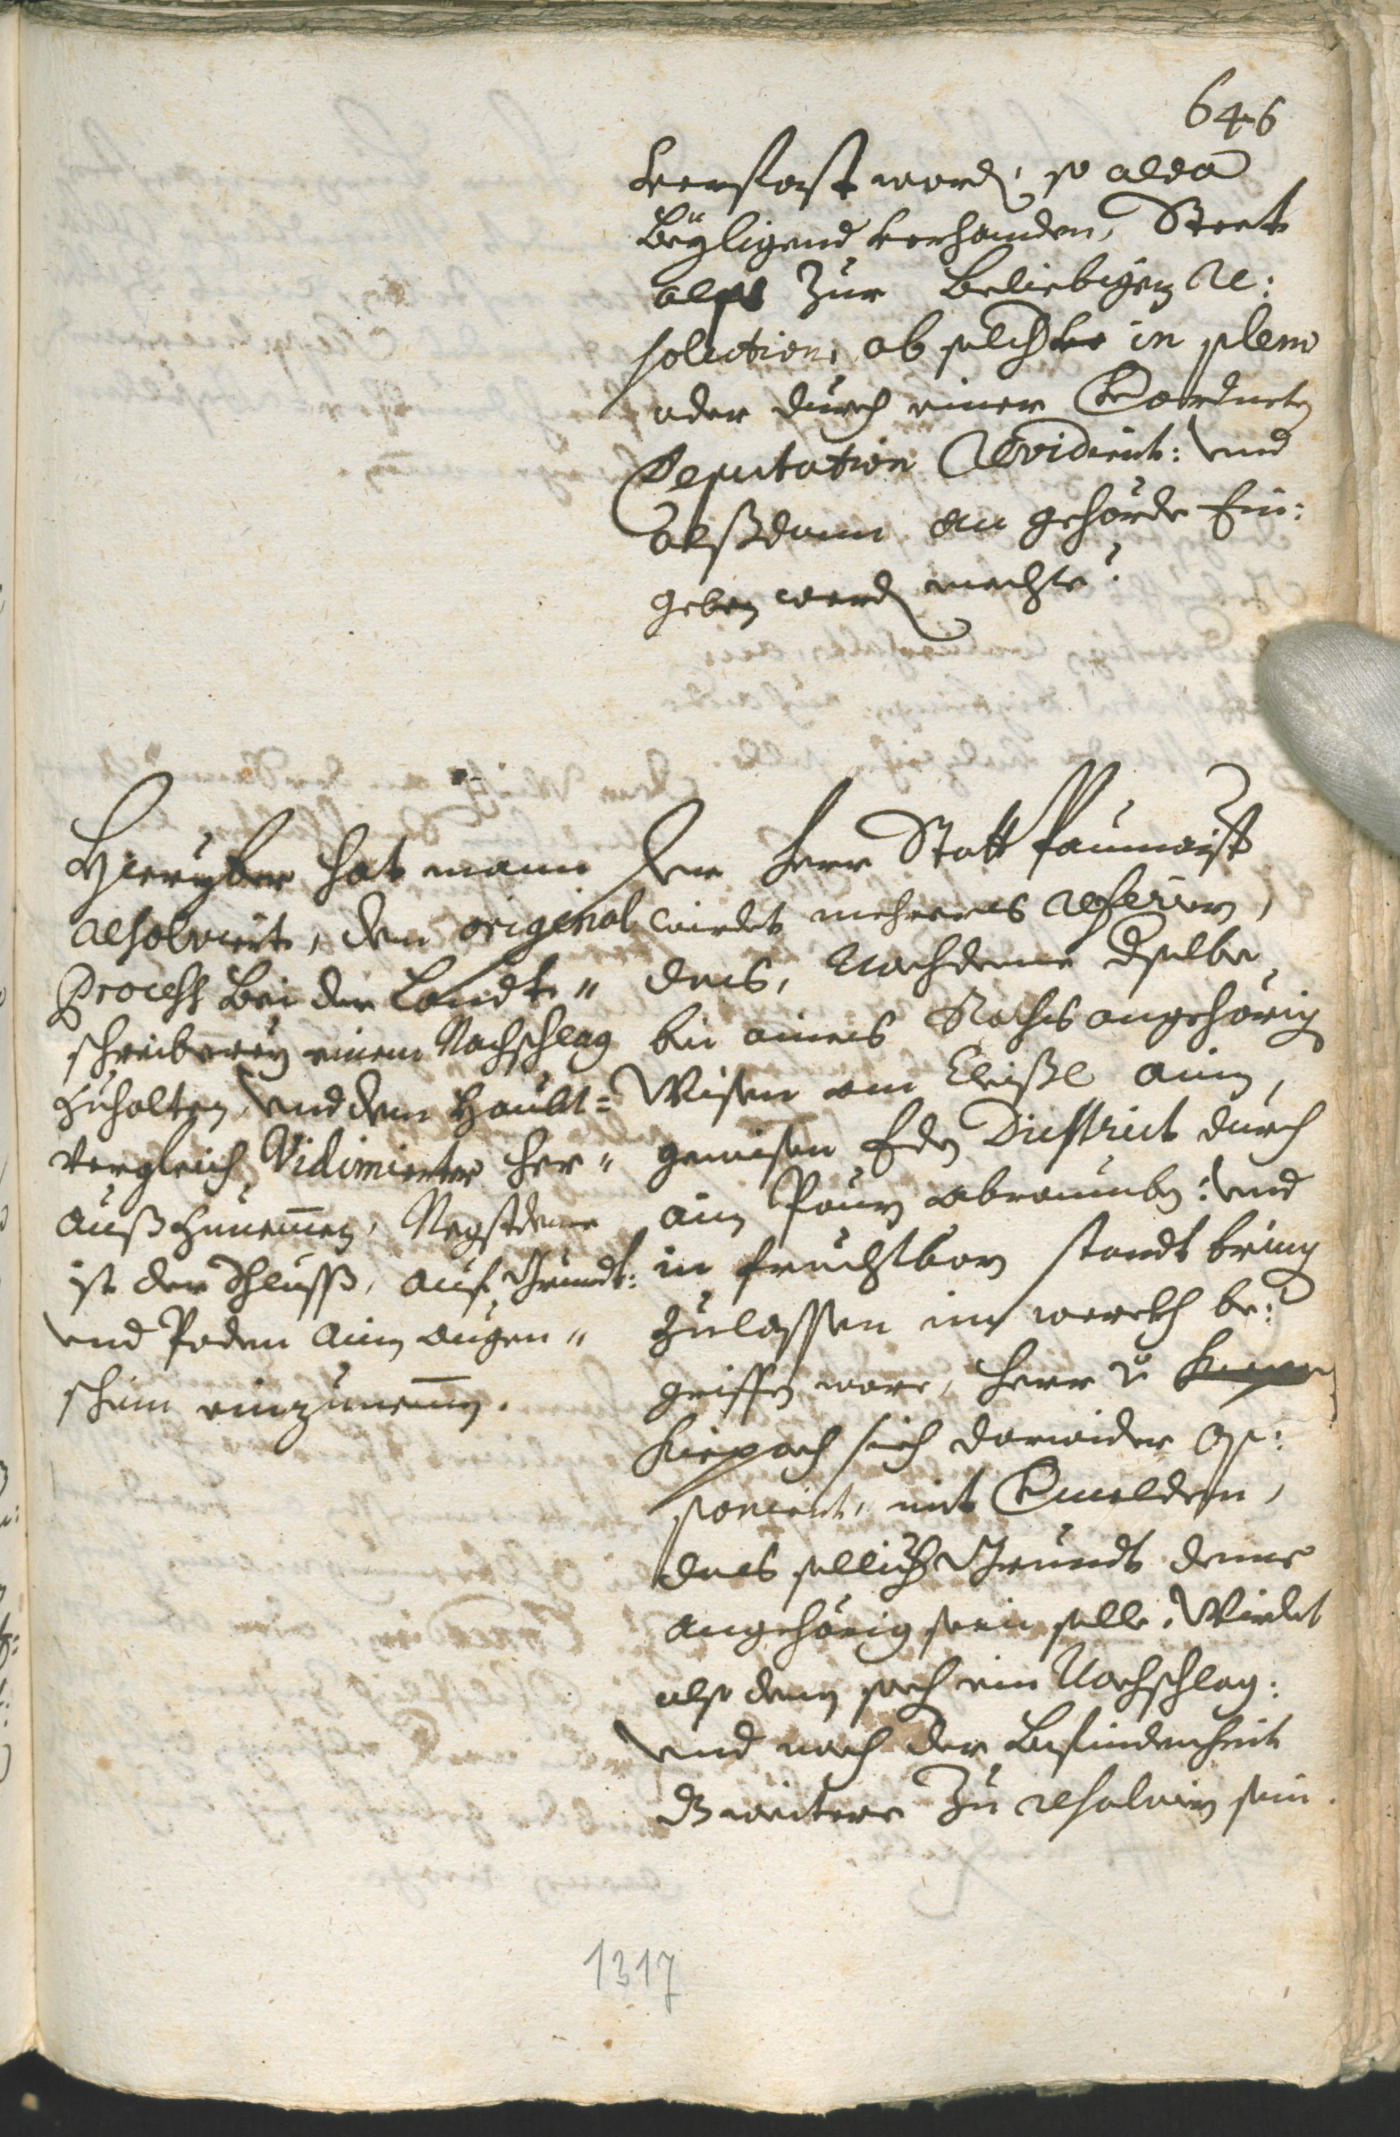 646
verfasst word, so alda
Beyligend verhanden, Steet
also zur Beliebigen Re:
solution, ob solches in pleno
oder durch einer verordneten
Deputation Revidiert: und
alßdann an gehörde Ein:
geben werden mechte?
Hieryber hat mann
Resolviert, den original
Process Bei der Landt=
schreiberey einem Nachschlag
zuhalten, und dem Haubt=
vergleich Vidimierter her=
auß zunemmen, Negst deme
ist der Schlusß, auf Grundt:
und Poden ain augen=
schein einzunemmen.
Der Herr Statt Paumaister
wirdet mehreres referiern,
dass, Nachdeme derselbe
bei aines Raths angehörigen
Wisen am Eisße ain,
gewisen Eden District durch
ain Paurn abraumben: und
in fruchtbarn standt bringen
zulassen im werckh be:
griffen ware, Herr v:
Kiepach sich darwider Op:
poniert, mit vermelden,
dass sollich Grundt deme
angehörig sein solle. Wirdet
also denen hoch ein Nachschlag:
und nach der Befindenheit
dz weitere zu resolviern sein.
1317